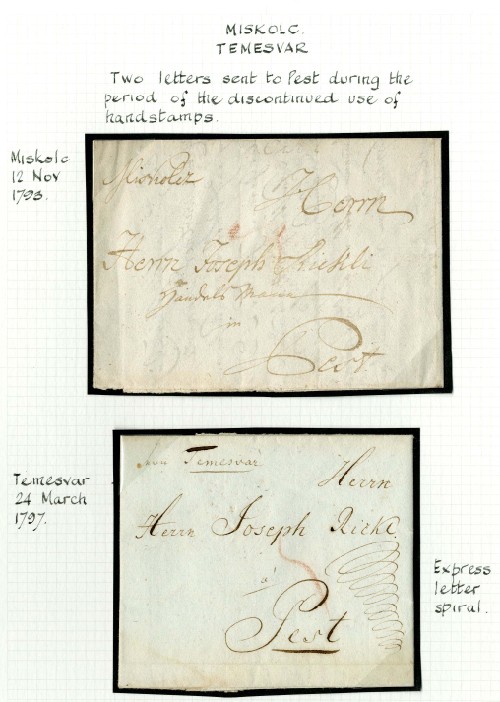 MISKOLC.
TEMESVAR
Two letters sent to Pest during the
period of the discontinued use of
handstamps.
Miskolc
12 Nov
1793.
Miskolcz
Herrn
Herrn Joseph Rickli
Handels Mann
in
Pest
Temesvar
24 March
1797.
von Temesvar
Herrn
Herrn Joseph Rickl
a
Pest
Express
letter
spiral.